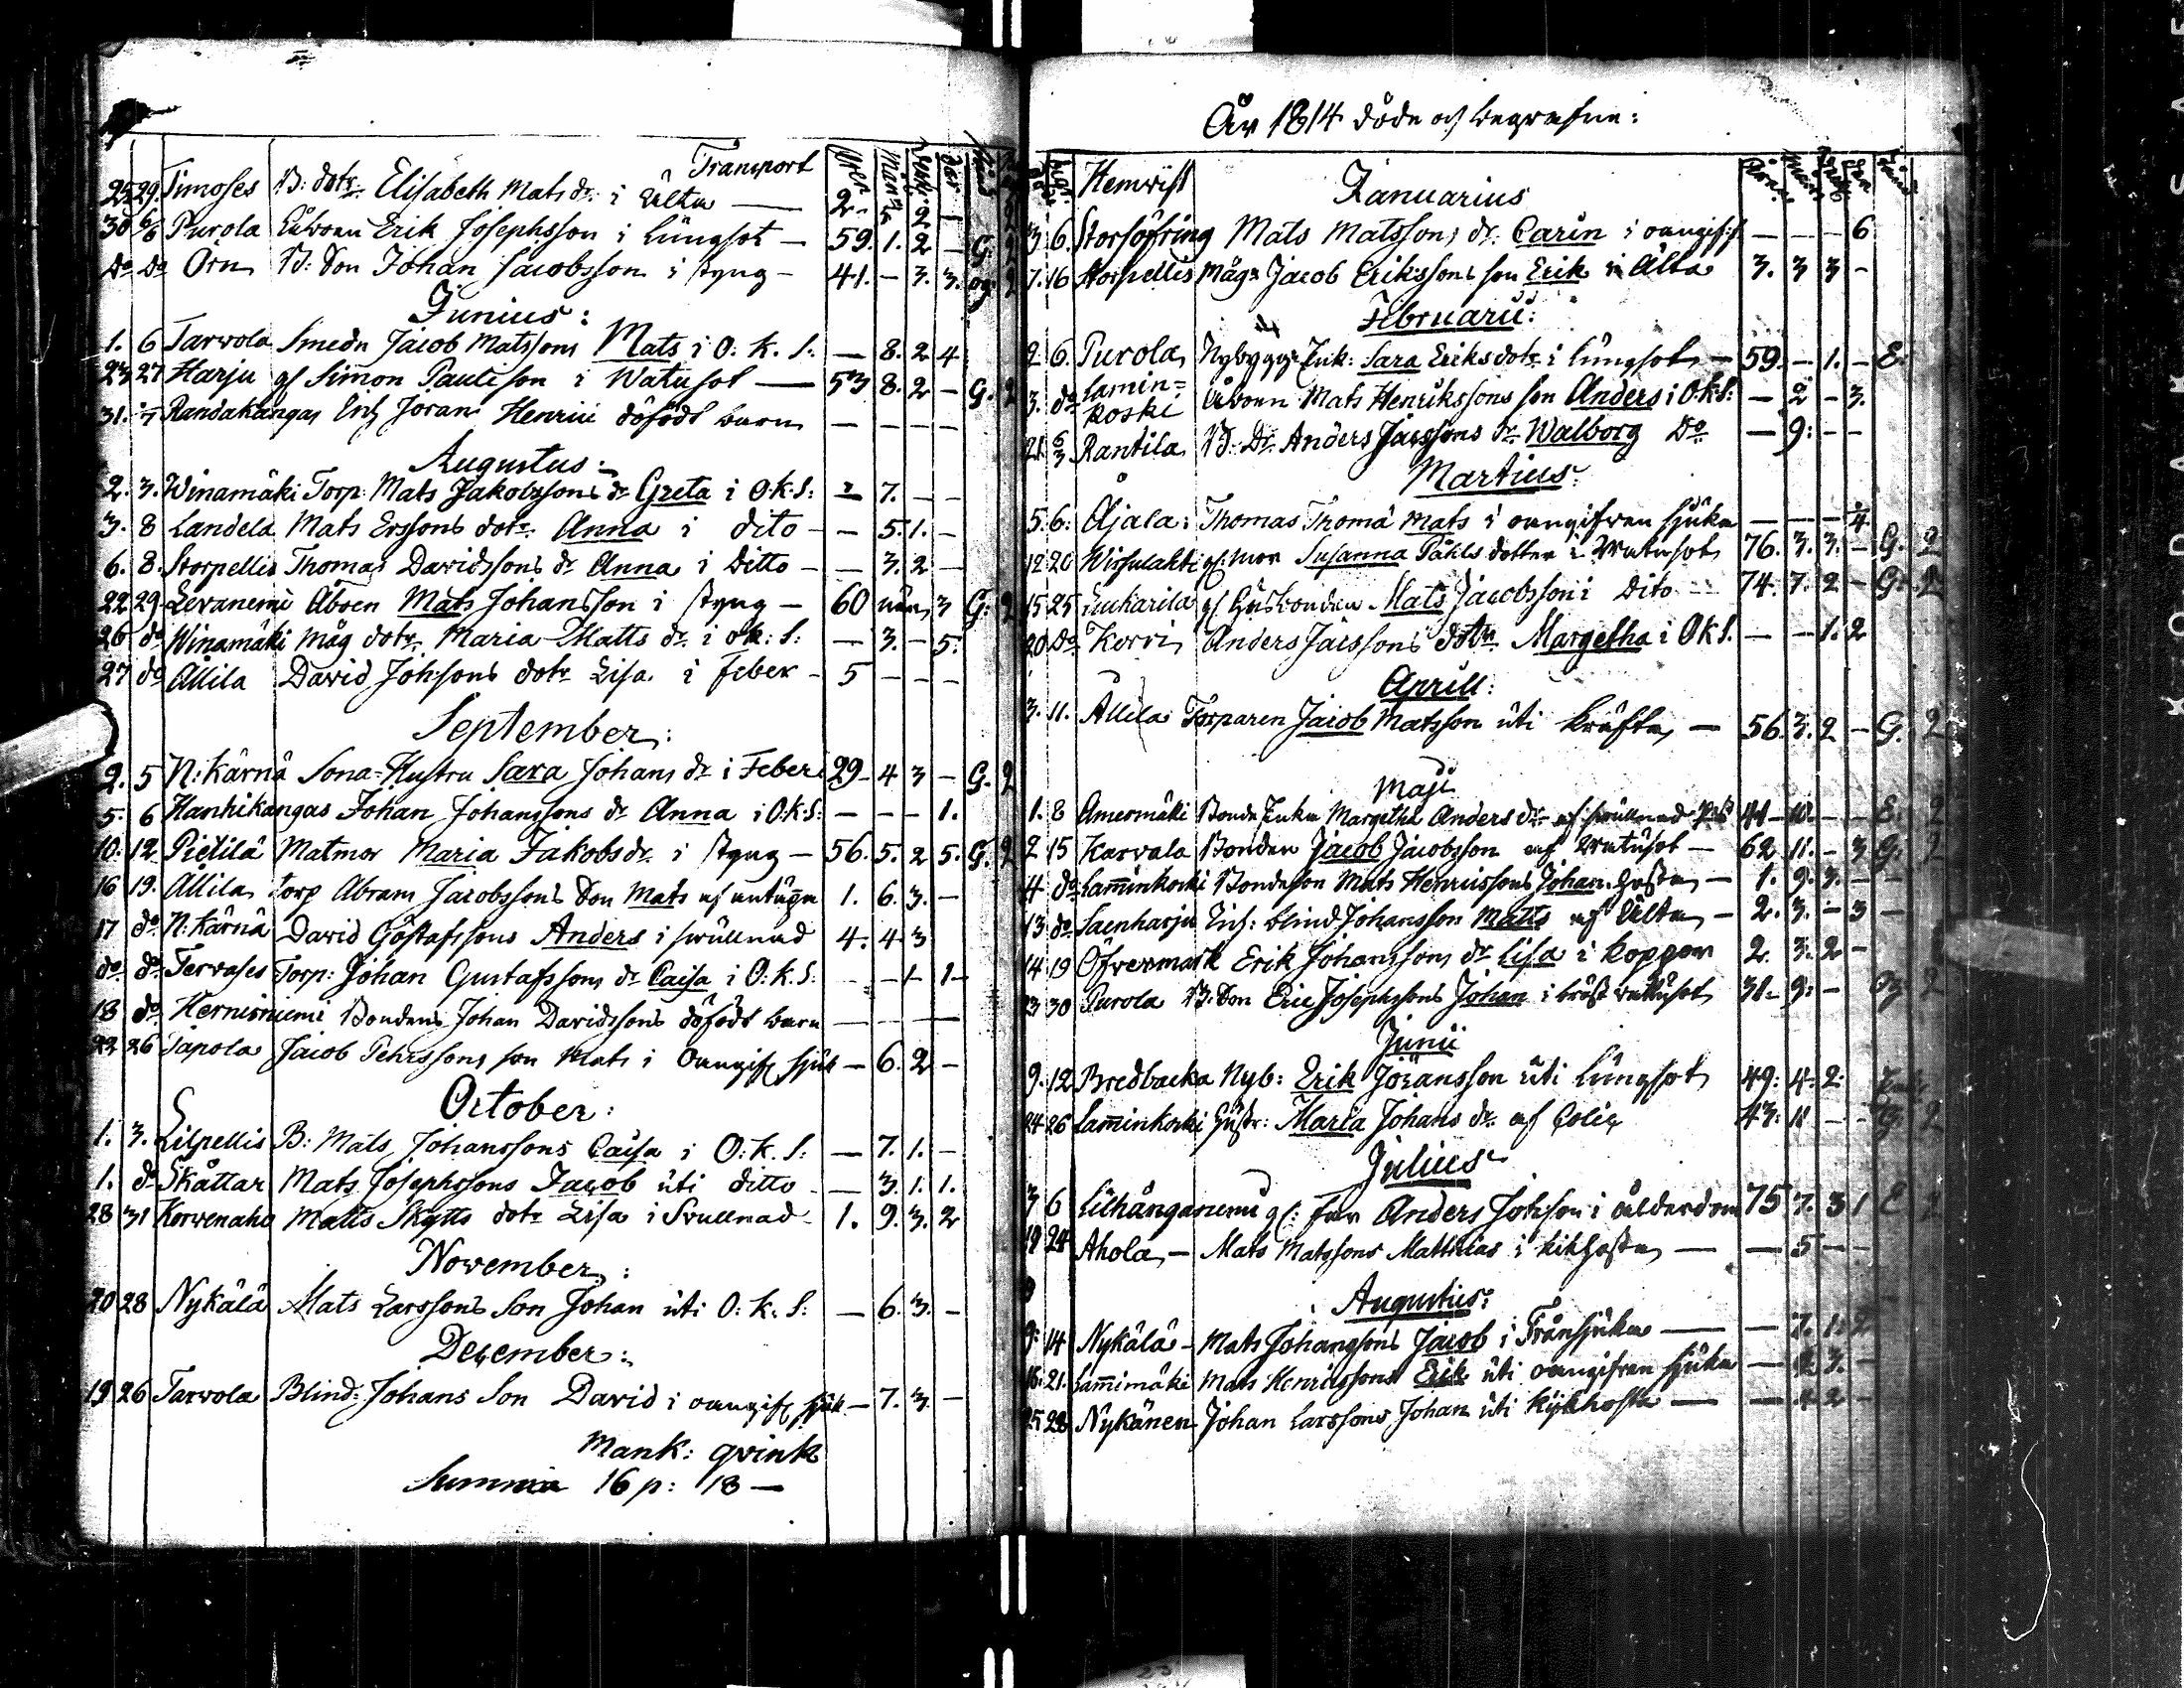 Transport
25 29. Timoses B: dotr Elisabeth Mats dr: i Älta — 2 - 2 —
30 6/6 Purola Åboen Erik Josephsson i Lungsot — 59. 1. 2 — G: 2
do do Örn B: Son Johan Jacobsson i styng — 41. — 3. 3. og: 2
Junius:
1. 6 Tarvola Smedn Jacob Matssons Mats i O: K. S: — 8. 2 4
23 27 Harju gl Simon Paulisson i Watusot — 53 8. 2 — G. 2
31. Randakangas Joran Henrici döfödt barn — — — —
Augustus:
2. 3. Winamäki Torp: Mats Jakobssons dr Greta i O:K:S: — 7. — —
3. 8 Landela Mats Erssons dotr Anna i dito — — 5. 1. —
6. 8. Storpellis Thomas Davidssons dr Anna i Ditto — — 3. 2 —
22 29 Levanemi Åboen Mats Johansson i styng — 60 3 G: 2
26 do Winamäki måg dotr Maria Matts dr i ok: S: — 3. — 5.
27 do Allila David Johssons dotr Lisa i Feber — 5 — — —
September:
2. 5 N: Kärnä Sona-Hustru Sara Johans dr i Feber 29 — 4 3 — G. 2
5. 6 Hanhikangas Johan Johanssons dr Anna i O:K:S: — — — 1.
10. 12. Pietilä Matmor Maria Jakobs dr. i styng — 56. 5. 2 5. G. 2
16 19. Allila torp Abram Jacobssons Son Mats af 1. 6. 3. —
17 do N: Kärnä David Göstafssons Anders i svullnad 4. 4 3
do do Tervases Torp: Johan Gustafssons dr Caisa i O: K. S: — — 1 —
18 do Hernesniemi Bondens Johan Davidssons döfödt barn — — —
22 26 Tapola Jacob Pehrssons son Mats i Oangif sjuk — 6. 2 —
October:
1. 3. Lilpellis B: Mats Johanssons Caisa i O: K. S: — 7. 1. —
1. do Skåttar Mats Josephssons Jacob uti ditto — — 3. 1. 1.
28 31 Korvenaho Matts Skytts dotr Lisa i Svullnad — 1. 9. 3. 2
November:
20 28 Nykälä Mats Larssons Son Johan uti O: K. S: — 6. 3. —
December:
19 26 Tarvola Blind: Johans Son David i oangif sjuk — 7. 3 —
Mank: qvink
Summa 16 p: 18 —
År 1814 döde och begrafne:
Hemvist
Januarius
3. 6. Storsöfring Mats Matssons dr: Carin i oangif: — — — 6
7. 16 Storpellis Mågn Jacob Erikssons son Erik i Älta 3. 3 3 —
Februarii:
2. 6. Purola Nybygg: Enk: Sara Eriks dotr i Lungsot — 59. — 1. — E.
3. do Lamin=
koski Åboen Mats Henrikssons son Anders i O:K:S: — 2 — 3.
21. 6/3 Rantila B: Dr. Anders Jacssons dr Walborg Do — 9: — —
Martius:
5. 6: Ojala: Thomas Thomä Mats i oangifven sjuka — — — 1/4
12 20 Wissulahti gl: mor Susanna Påhls dotter i Watusot 76. 3. 3. — G. 2
15 25 Lucharila gl Husbonden Mats Jacobsson i dito — 74. 7. 2 — G: 2
20 do Korvi Anders Jacssons dotr Margetha i OKS. — — 1. 2
Aprill:
3. 11. Allila Torparen Jacob Matsson uti kräfta — 56. 3. 2 — G. 2
Maji
1. 8 Amermäki Bonde Enka Margetha Anders dr af svullnad 44 — 10. — — E: 2
2 15 Karvala Bonden Jacob Jacobsson af Watusot — 62 11. — 3 G: 2
4 do Lamminkoski Bondeson Mats Henricssons Johan hosta — 1. 9. 3. — —
13 do Saenharju Blind Johansson Matts af Älta — 2. 3. — 3 —
14 19 Öfvermark Erik Johanssons dr Lisa i koppor 2. 3. 2 —
23 30 Purola B. Son Eric Josephssons Johan i bröst 31. 9: — 2
Junii
9. 12 Bredbacka Nyb: Erik Joransson uti Lungsot 49: 4: 2:
24 26 Lamminkoski Hustr: Maria Johans dr. af Colic 43: 11 — — 2
Julius
3 6 gl: far Anders Johsson i ålderdom 75 7. 3 1 E 2
19 24 Ahola, — Mats Matssons Matthias i kikhosta — — 5 — —
Augustus:
9. 14 Nykälä — Mats Johanssons Jacob i Trånsjuka — — 7. 1. 2
16. 21. Lammimäki Mats Henrikssons Erik uti oangifven sjuka — 2 3. —
25 28 Nykänen Johan Larssons Johan uti kykhosta — — 4 2 —